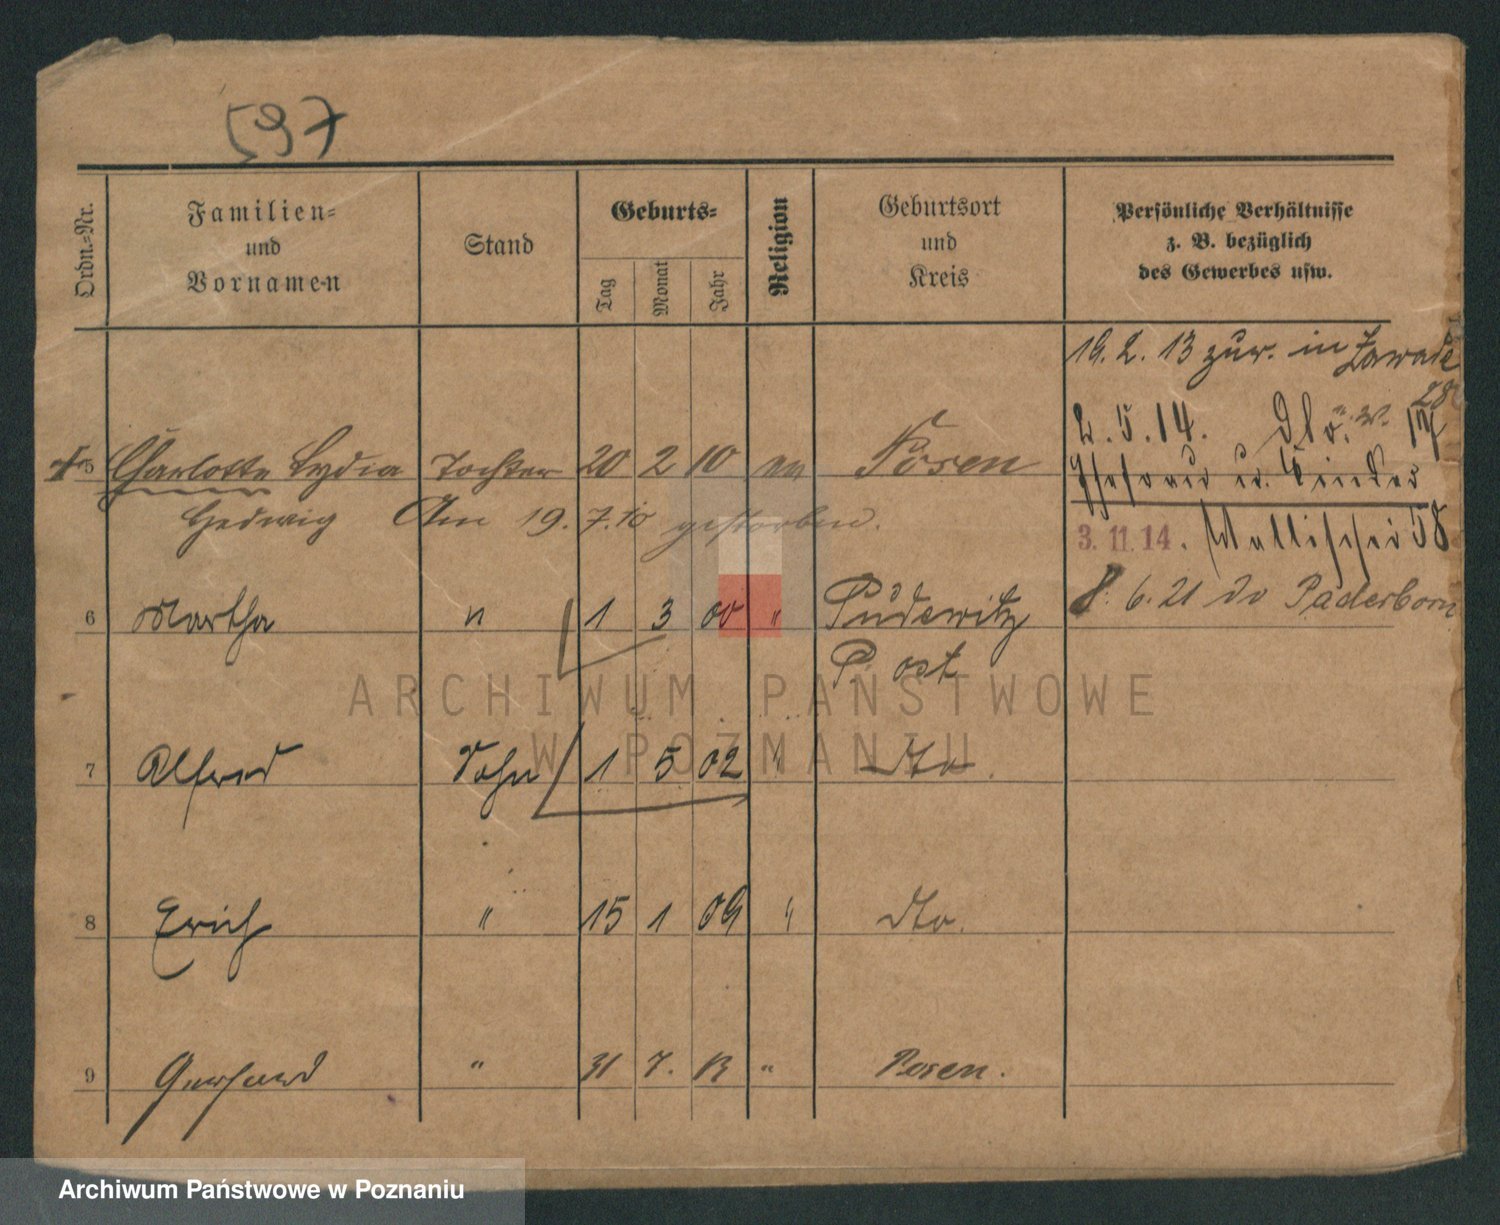 597
Ordn.-Nr.
Familien-
und
Vornamen
Stand
Geburts-
Tag
Monat
Jahr
Religion
Geburtsort
und
Kreis
Persönliche Verhältnisse
z. B. bezüglich
des Gewerbes usw.
19. 2. 13 zur. in Zawade
28
2. 5. 14.
17
5 Charlotte Lydia Tochter 20 2 10 Posen
Ehefrau u. Kinder
Hedwig Am 19. 7. 10 gestorben.
3. 11. 14. Wallischei 58
6 Martha " 1 3 00 " Pudewitz
8. 6. 21 do Paderborn
P. ost
ARCHIWUM PAŃSTWOWE
W POZNANIU
7 Alfred Sohn 1 5 02 " dto.
8 Erich " 15 1 09 " dto.
9 Gerhard " 31 7. 13 " Posen.
Archiwum Państwowe w Poznaniu